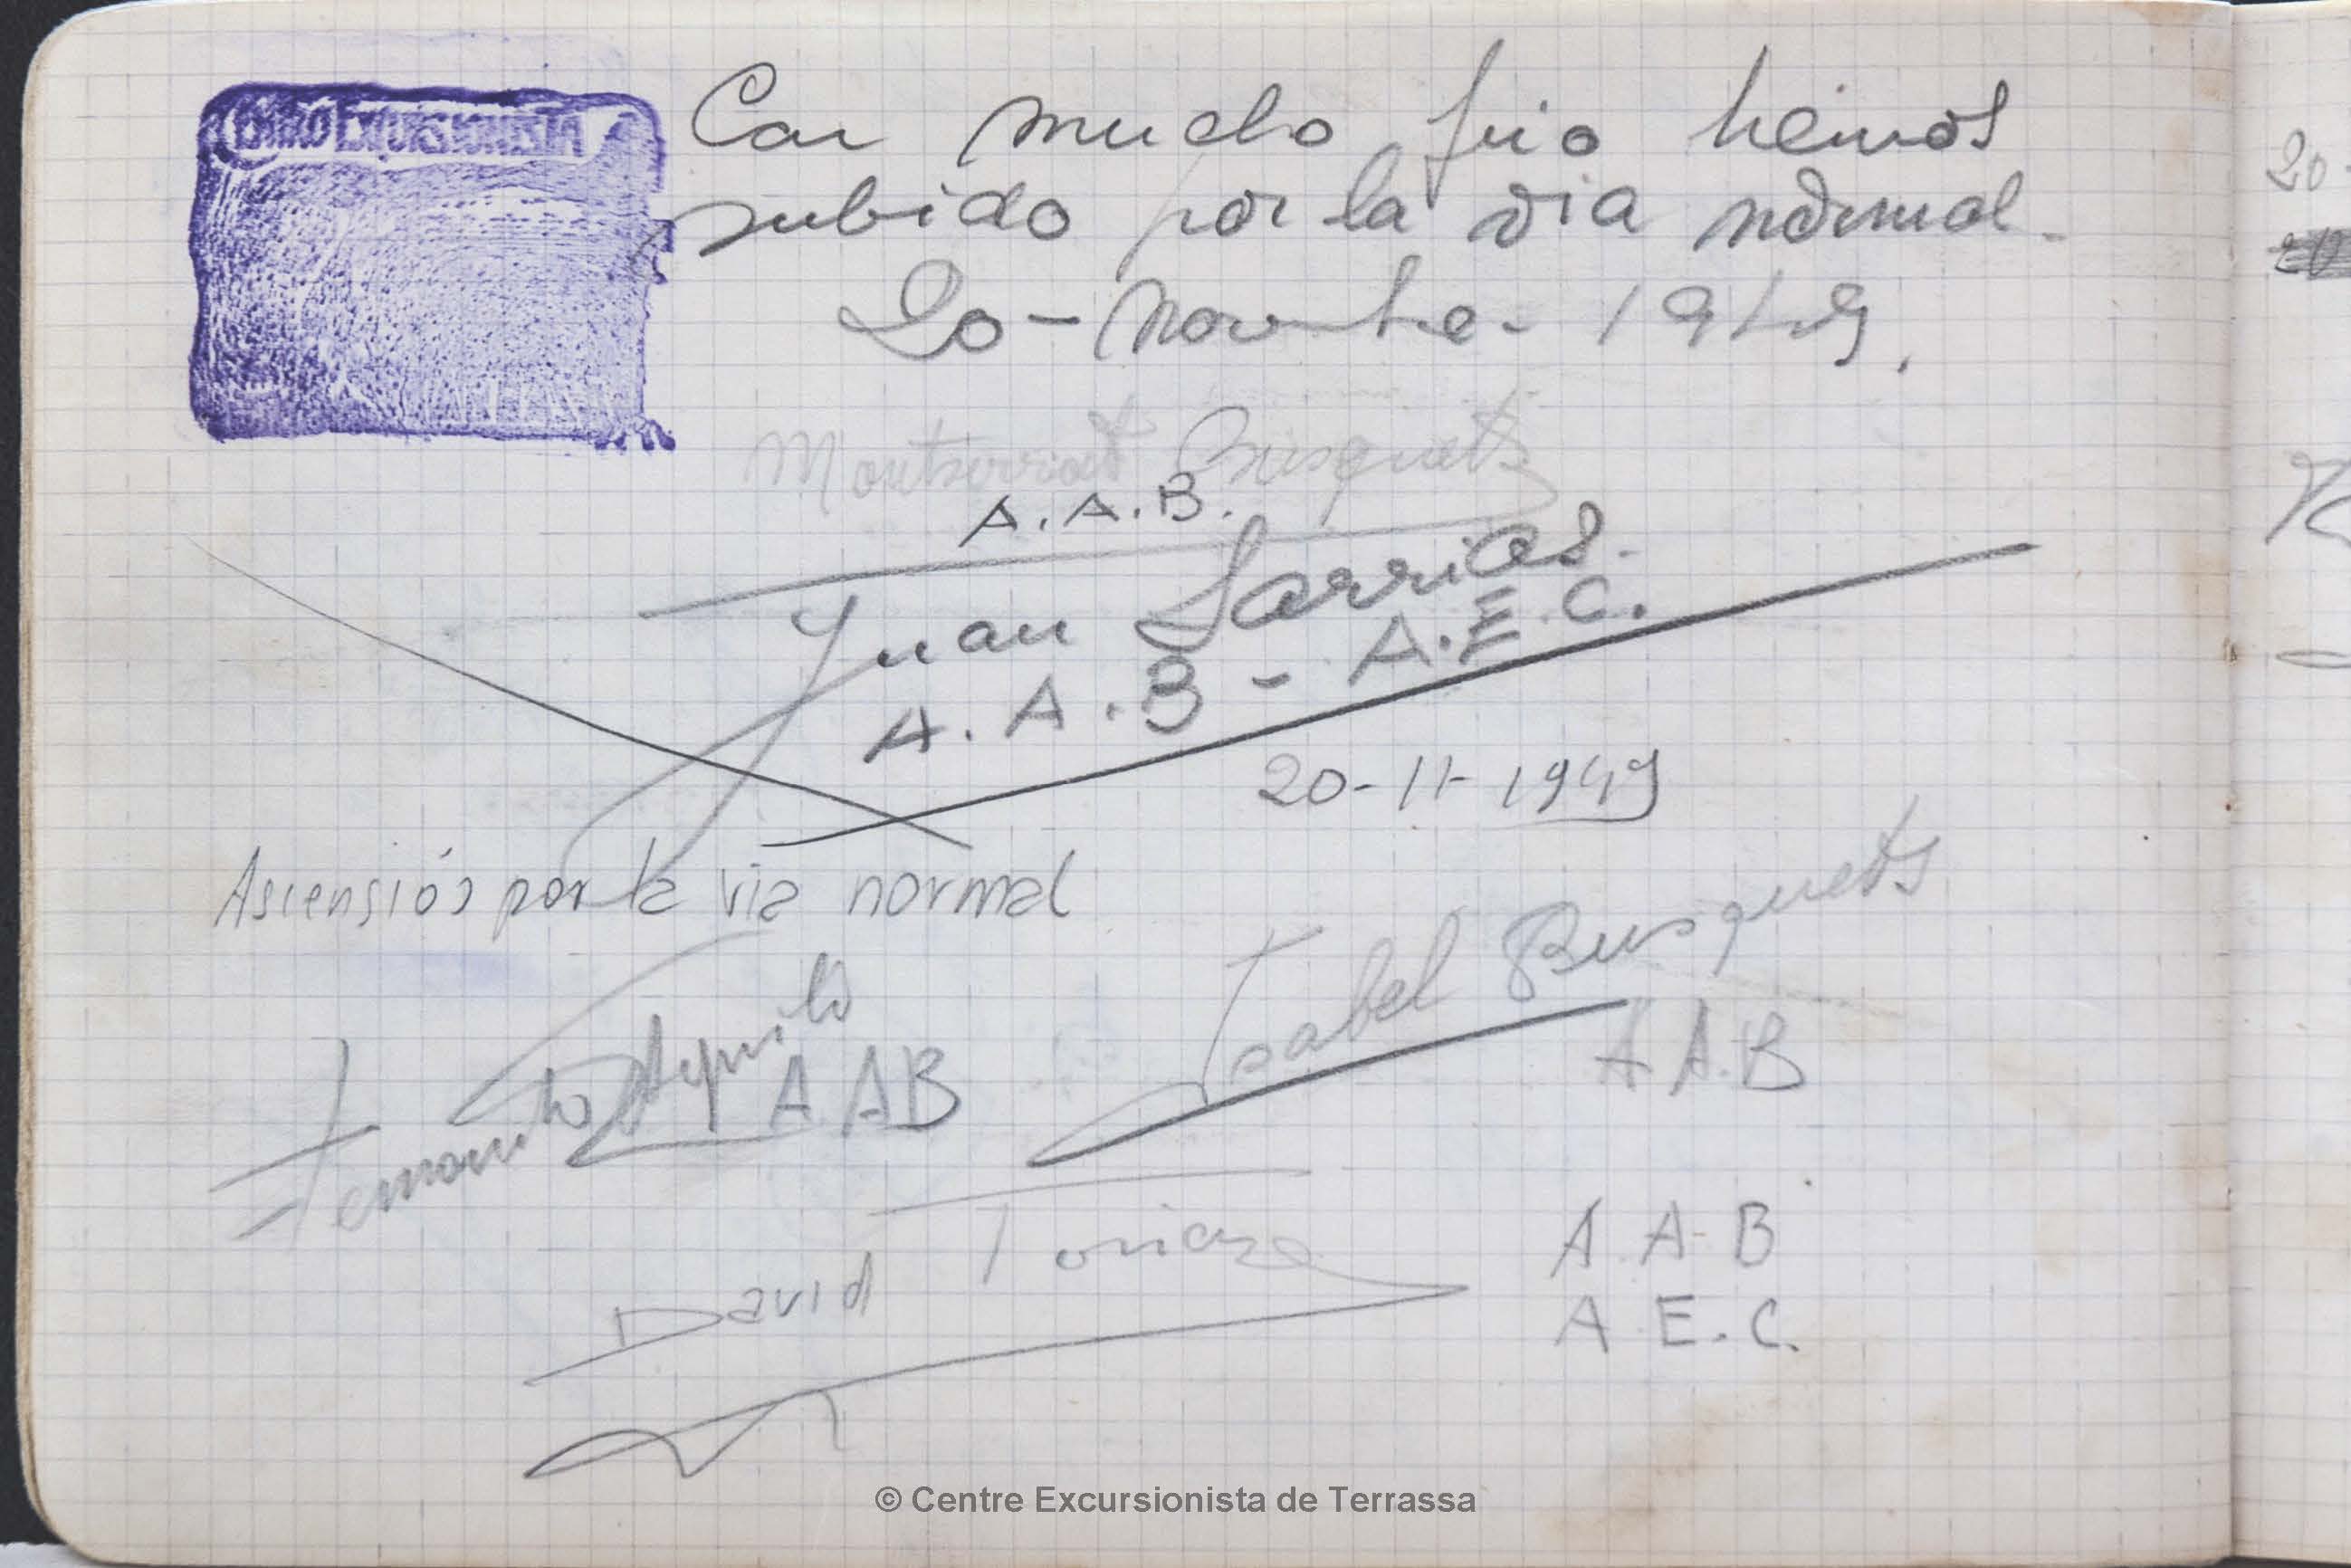 CENTRO EXCURSIONISTA
Con mucho frio hemos
subido por la via normal.
20-Novembre-1949.
Montserrat Busquets
A.A.B.
Juan Sarrias.
A.A.B - A.E.C.
20-11-1949
Ascensión por la via normal
Isabel Busquets
A A.B
A AB
David
A A B
A E.C.
20
© Centre Excursionista de Terrassa